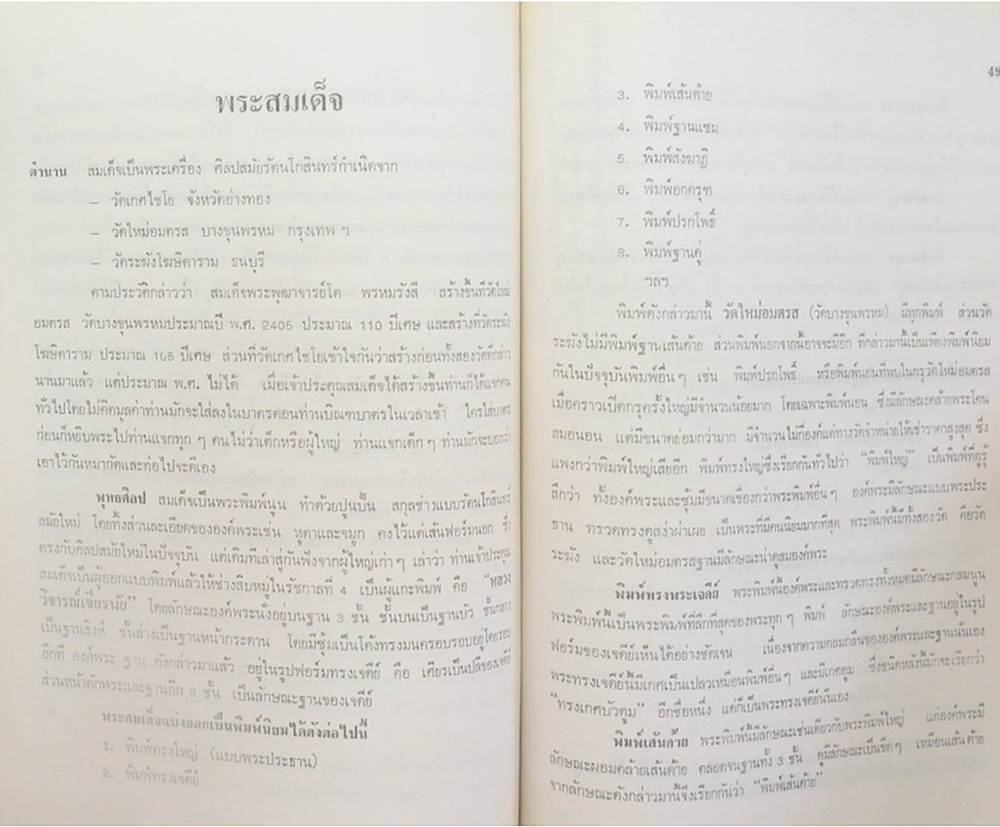 พระสมเด็จ
ตำนาน สมเด็จเป็นพระเครื่อง ศิลปสมัยรัตนโกสินทร์กำเนิดจาก
– วัดเกศไชโย จังหวัดอ่างทอง
– วัดใหม่อมตรส บางขุนพรหม กรุงเทพ ฯ
– วัดระฆังโฆษิตาราม ธนบุรี
ตามประวัติกล่าวว่า สมเด็จพระพุฒาจารย์โต พรหมรังสี สร้างขึ้นที่วัดใหม่
อมตรส วัดบางขุนพรหมประมาณปี พ.ศ. 2405 ประมาณ 110 ปีเศษ และสร้างที่วัดระฆัง
โฆษิตาราม ประมาณ 105 ปีเศษ ส่วนที่วัดเกศไชโยเข้าใจกันว่าสร้างก่อนทั้งสองวัดที่กล่าว
นานมาแล้ว แต่ประมาณ พ.ศ. ไม่ได้ เมื่อเจ้าประคุณสมเด็จได้สร้างขึ้นท่านก็ได้แจกคน
ทั่วไปโดยไม่คิดมูลค่าท่านมักจะใส่ลงในบาตรตอนท่านบิณฑบาตรในเวลาเช้า ใครใส่บาตร
ก่อนก็หยิบพระไปท่านแจกทุก ๆ คนไม่ว่าเด็กหรือผู้ใหญ่ ท่านแจกเด็ก ๆ ท่านมักจะบอกว่า
เอาไว้กันหมากัดและต่อไปจะดีเอง
พุทธศิลป สมเด็จเป็นพระพิมพ์นูน ทำด้วยปูนปั้น สกุลช่างแบบรัตนโกสินทร์
สมัยใหม่ โดยทิ้งส่วนละเอียดขององค์พระเช่น หูตาและจมูก คงไว้แต่เส้นฟอร์มนอก ซึ่ง
ตรงกับศิลปสมัยใหม่ในปัจจุบัน แต่เดิมทีเล่าสู่กันฟังจากผู้ใหญ่เก่า ๆ เล่าว่า ท่านเจ้าประคุณ
สมเด็จเป็นผู้ออกแบบพิมพ์แล้วให้ช่างสิบหมู่ในรัชกาลที่ 4 เป็นผู้แกะพิมพ์ คือ "หลวง
วิจารณ์เจียรนัย" โดยลักษณะองค์พระนั่งอยู่บนฐาน 3 ชั้น ชั้นบนเป็นฐานบัว ชั้นกลาง
เป็นฐานสิงห์ ชั้นล่างเป็นฐานหน้ากระดาน โดยมีซุ้มเป็นโค้งทรงมนครอบรอบอยู่โดยรอบ
อีกที องค์พระ ฐาน ดังกล่าวมาแล้ว อยู่ในรูปฟอร์มทรงเจดีย์ คือ เศียรเป็นปลีของเจดีย์
ส่วนหน้าตักพระและฐานอีก 3 ชั้น เป็นลักษณะฐานของเจดีย์
พระสมเด็จแบ่งออกเป็นพิมพ์นิยมได้ดังต่อไปนี้
1. พิมพ์ทรงใหญ่ (แบบพระประธาน)
2. พิมพ์ทรงเจดีย์
49
3. พิมพ์เส้นด้าย
4. พิมพ์ฐานแซม
5. พิมพ์สังฆาฏิ
6. พิมพ์อกครุฑ
7. พิมพ์ปรกโพธิ์
8. พิมพ์ฐานคู่
ฯลฯ
พิมพ์ดังกล่าวมานี้ วัดใหม่อมตรส (วัดบางขุนพรหม) มีทุกพิมพ์ ส่วนวัด
ระฆังไม่มีพิมพ์ฐานเส้นด้าย ส่วนพิมพ์นอกจากนี้อาจจะมีอีก ที่กล่าวมานี้เป็นเพียงพิมพ์นิยม
กันในปัจจุบันพิมพ์อื่น ๆ เช่น พิมพ์ปรกโพธิ์ หรือพิมพ์นอนที่พบในกรุวัดใหม่อมตรส
เมื่อคราวเปิดกรุครั้งใหญ่มีจำนวนน้อยมาก โดยเฉพาะพิมพ์นอน ซึ่งมีลักษณะคล้ายพระโคน
สมอนอน แต่มีขนาดย่อมกว่ามาก มีจำนวนไม่กี่องค์แต่ทางวัดจำหน่ายให้เช่าราคาสูงสุด ซึ่ง
แพงกว่าพิมพ์ใหญ่เสียอีก พิมพ์ทรงใหญ่ซึ่งเรียกกันทั่วไปว่า "พิมพ์ใหญ่" เป็นพิมพ์ที่ดูรู้
สึกว่า ทั้งองค์พระและซุ้มมีขนาดเขื่องกว่าพระพิมพ์อื่น ๆ องค์พระมีลักษณะแบบพระประ
ธาน ทรวดทรงดูสง่าผ่าเผย เป็นพระที่มีคนนิยมมากที่สุด พระพิมพ์นี้มีทั้งสองวัด คือวัด
ระฆัง และวัดใหม่อมตรสฐานมีลักษณะน่าดูสมองค์พระ
พิมพ์ทรงพระเจดีย์ พระพิมพ์นี้องค์พระและทรวดทรงทั้งหมดมีลักษณะกลมนูน
พระพิมพ์นี้เป็นพระพิมพ์ที่ลึกที่สุดของพระทุก ๆ พิมพ์ ลักษณะองค์พระและฐานอยู่ในรูป
ฟอร์มของเจดีย์เห็นได้อย่างชัดเจน เนื่องจากความกลมกลืนขององค์พระและฐานนั่นเอง
พระทรงเจดีย์นี้มีเกศเป็นเปลวเหมือนพิมพ์อื่น ๆ และมีเกศตูม ซึ่งชนิดหลังนี้มักจะเรียกว่า
"ทรงเกศบัวตูม" อีกชื่อหนึ่ง แต่ก็เป็นพระทรงเจดีย์นั่นเอง
พิมพ์เส้นด้าย พระพิมพ์นี้มีลักษณะเช่นเดียวกับพระพิมพ์ใหญ่ แต่องค์พระมี
ลักษณะผอมคล้ายเส้นด้าย ตลอดจนฐานทั้ง 3 ชั้น ดูมีลักษณะเป็นขีด ๆ เหมือนเส้นด้าย
จากลักษณะดังกล่าวมานี้จึงเรียกกันว่า "พิมพ์เส้นด้าย"